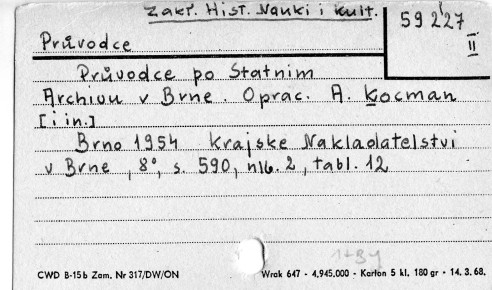 Zakł. Hist. Nauki i Kult.
59 227
II
Průvodce
Průvodce po Statnim
Archivu v Brne. Oprac. A. Kocman
[i in.]
Brno 1954 Krajske Nakladatelstvi
v Brne, 8°, s. 590, nlb. 2, tabl. 12
CWD B-15b Zam. Nr 317/DW/ON
Wrak 647 - 4.945.000 - Karton 5 kl. 180 gr - 14. 3. 68.